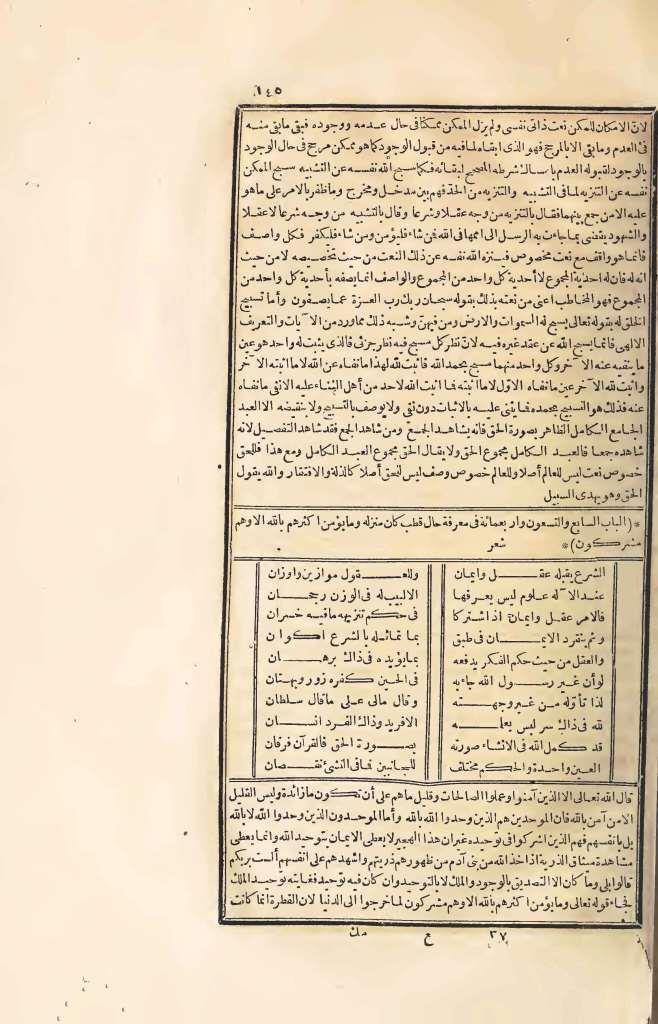 ١٤٥
لان الامكان للممكن نعت ذاتى نفسى ولم يزل الممكن ممكنا فى حال عدمه ووجوده فبقى ما بقى منه
فى العدم وما بقى الا بالمرجح فهو الذى ابقاه لما فيه من قبول الوجود كما هو ممكن مرجح فى حال الوجود
بالوجود لقبوله العدم بامساك شرطه المصحح ابقائه فكما سبح الله نفسه عن التشبيه سبح الممكن
نفسه عن التنزيه لما فى التشبيه والتنزيه من الحد فهم بين مدخل ومخرج وما ظفر بالامر على ما هو
عليه الا من جمع بينهما فقال بالتنزيه من وجه عقلا وشرعا وقال بالتشبيه من وجه شرعا لا عقلا
والشهود يقضى بما جاءت به الرسل الى اممها فى الله فمن شاء فليؤمن ومن شاء فليكفر فكل واصف
فانما هو واقف مع نعت مخصوص فينزه الله نفسه عن ذلك النعت من حيث تخصيصه لا من حيث
انه له فان له احدية المجموع لا أحدية كل واحد من المجموع والواصف انما يصفه بأحدية كل واحد من
المجموع فهو المخاطب اعنى من نعته بذلك بقوله سبحان ربك رب العزة عما يصفون وأما تسبيح
الخلق له بقوله تعالى يسبح له السموات والارض ومن فيهن وشبه ذلك مما ورد من الآيات والتعريف
الالهى فانما يسبح الله عن عقد غيره فيه لان نظر كل مسبح فيه نظر جزئى فالذى يثبت له واحد هو عين
ما ينفيه عنه الآخر وكل واحد منهما مسبح بحمد الله فاثبت الله لهذا ما نفاه عن الله لا ما اثبته الآخر
واثبت لله الآخر عين ما نفاه الاول لا ما اثبته فما اثبت الله لاحد من أهل الثناء عليه الا نفى ما نفاه
عنه فذلك هو التسبيح بحمده فما يثنى عليه بالاثبات دون نفى ولا يوصف بالتسبيح ولا بنقيضه الا العبد
الجامع الكامل الظاهر بصورة الحق فانه يشاهد الجمع ومن شاهد الجمع فقد شاهد التفصيل لانه
شاهده جمعا فالعبد الكامل مجموع الحق ولا يقال الحق مجموع العبد الكامل ومع هذا فللحق
خصوص نعت ليس للعالم أصلا وللعالم خصوص وصف ليس للحق أصلا كالذلة والافتقار والله يقول
الحق وهو يهدى السبيل
*(الباب السابع والتسعون واربعمائة فى معرفة حال قطب كان منزله وما يؤمن اكثرهم بالله الا وهم
مشركون)* شعر
الشرع يقبله عقل وايمان وللعقول موازين واوزان
عند الاله علوم ليس يعرفها الا لبيب له فى الوزن رجحان
فالامر عقل وايمان اذا اشتركا فى حكم تنزيهه ما فيه خسران
وثم ينفرد الايمان فى طبق بما تماثله بالشرع اكوان
والعقل من حيث حكم الفكر يدفعه بما يؤيده فى ذاك برهان
لو أن غير رسول الله جاء به فى الحين كفره زور وبهتان
لذا تأوله من غير وجهته وقال مالى على ما قال سلطان
لله فى ذاك سر ليس يعلمه الا فريد وذاك الفرد انسان
قد كمل الله فى الانشاء صورته بصورة الحق فالقرآن فرقان
العين واحدة والحكم مختلف للجانبين فما فى النشئ نقصان
قال الله تعالى الا الذين آمنوا وعملوا الصالحات وقليل ما هم على أن تكون ما زائدة وليس القليل
الا من آمن بالله فان الموحدين هم الذين وحدوا الله بالله وأما الموحدون الذين وحدوا الله لا بالله
بل بانفسهم فهم الذين اشركوا فى توحيده غير ان هذا لا يعطى الايمان بتوحيد الله وانما يعطى
مشاهدة ميثاق الذرية اذ اخذ الله من بنى آدم من ظهورهم ذريتهم واشهدهم على انفسهم ألست بربكم
قالوا بلى وما كان الا التصديق بالوجود والملك لا بالتوحيد وان كان فيه توحيد فغايته توحيد الملك
فجاء قوله تعالى وما يؤمن اكثرهم بالله الا وهم مشركون لما خرجوا الى الدنيا لان الفطرة انما كانت
٣٧ ع مك